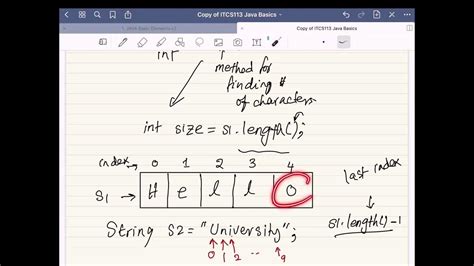 Copy of ITCS113 Java Basics
Copy of ITCS113 Java Basics
int
method for
finding #
of characters
int size = s1.length();
index 0 1 2 3 4
s1 → H e l l o
last index
s1.length()-1
String s2="University";
0 1 2 .. 9